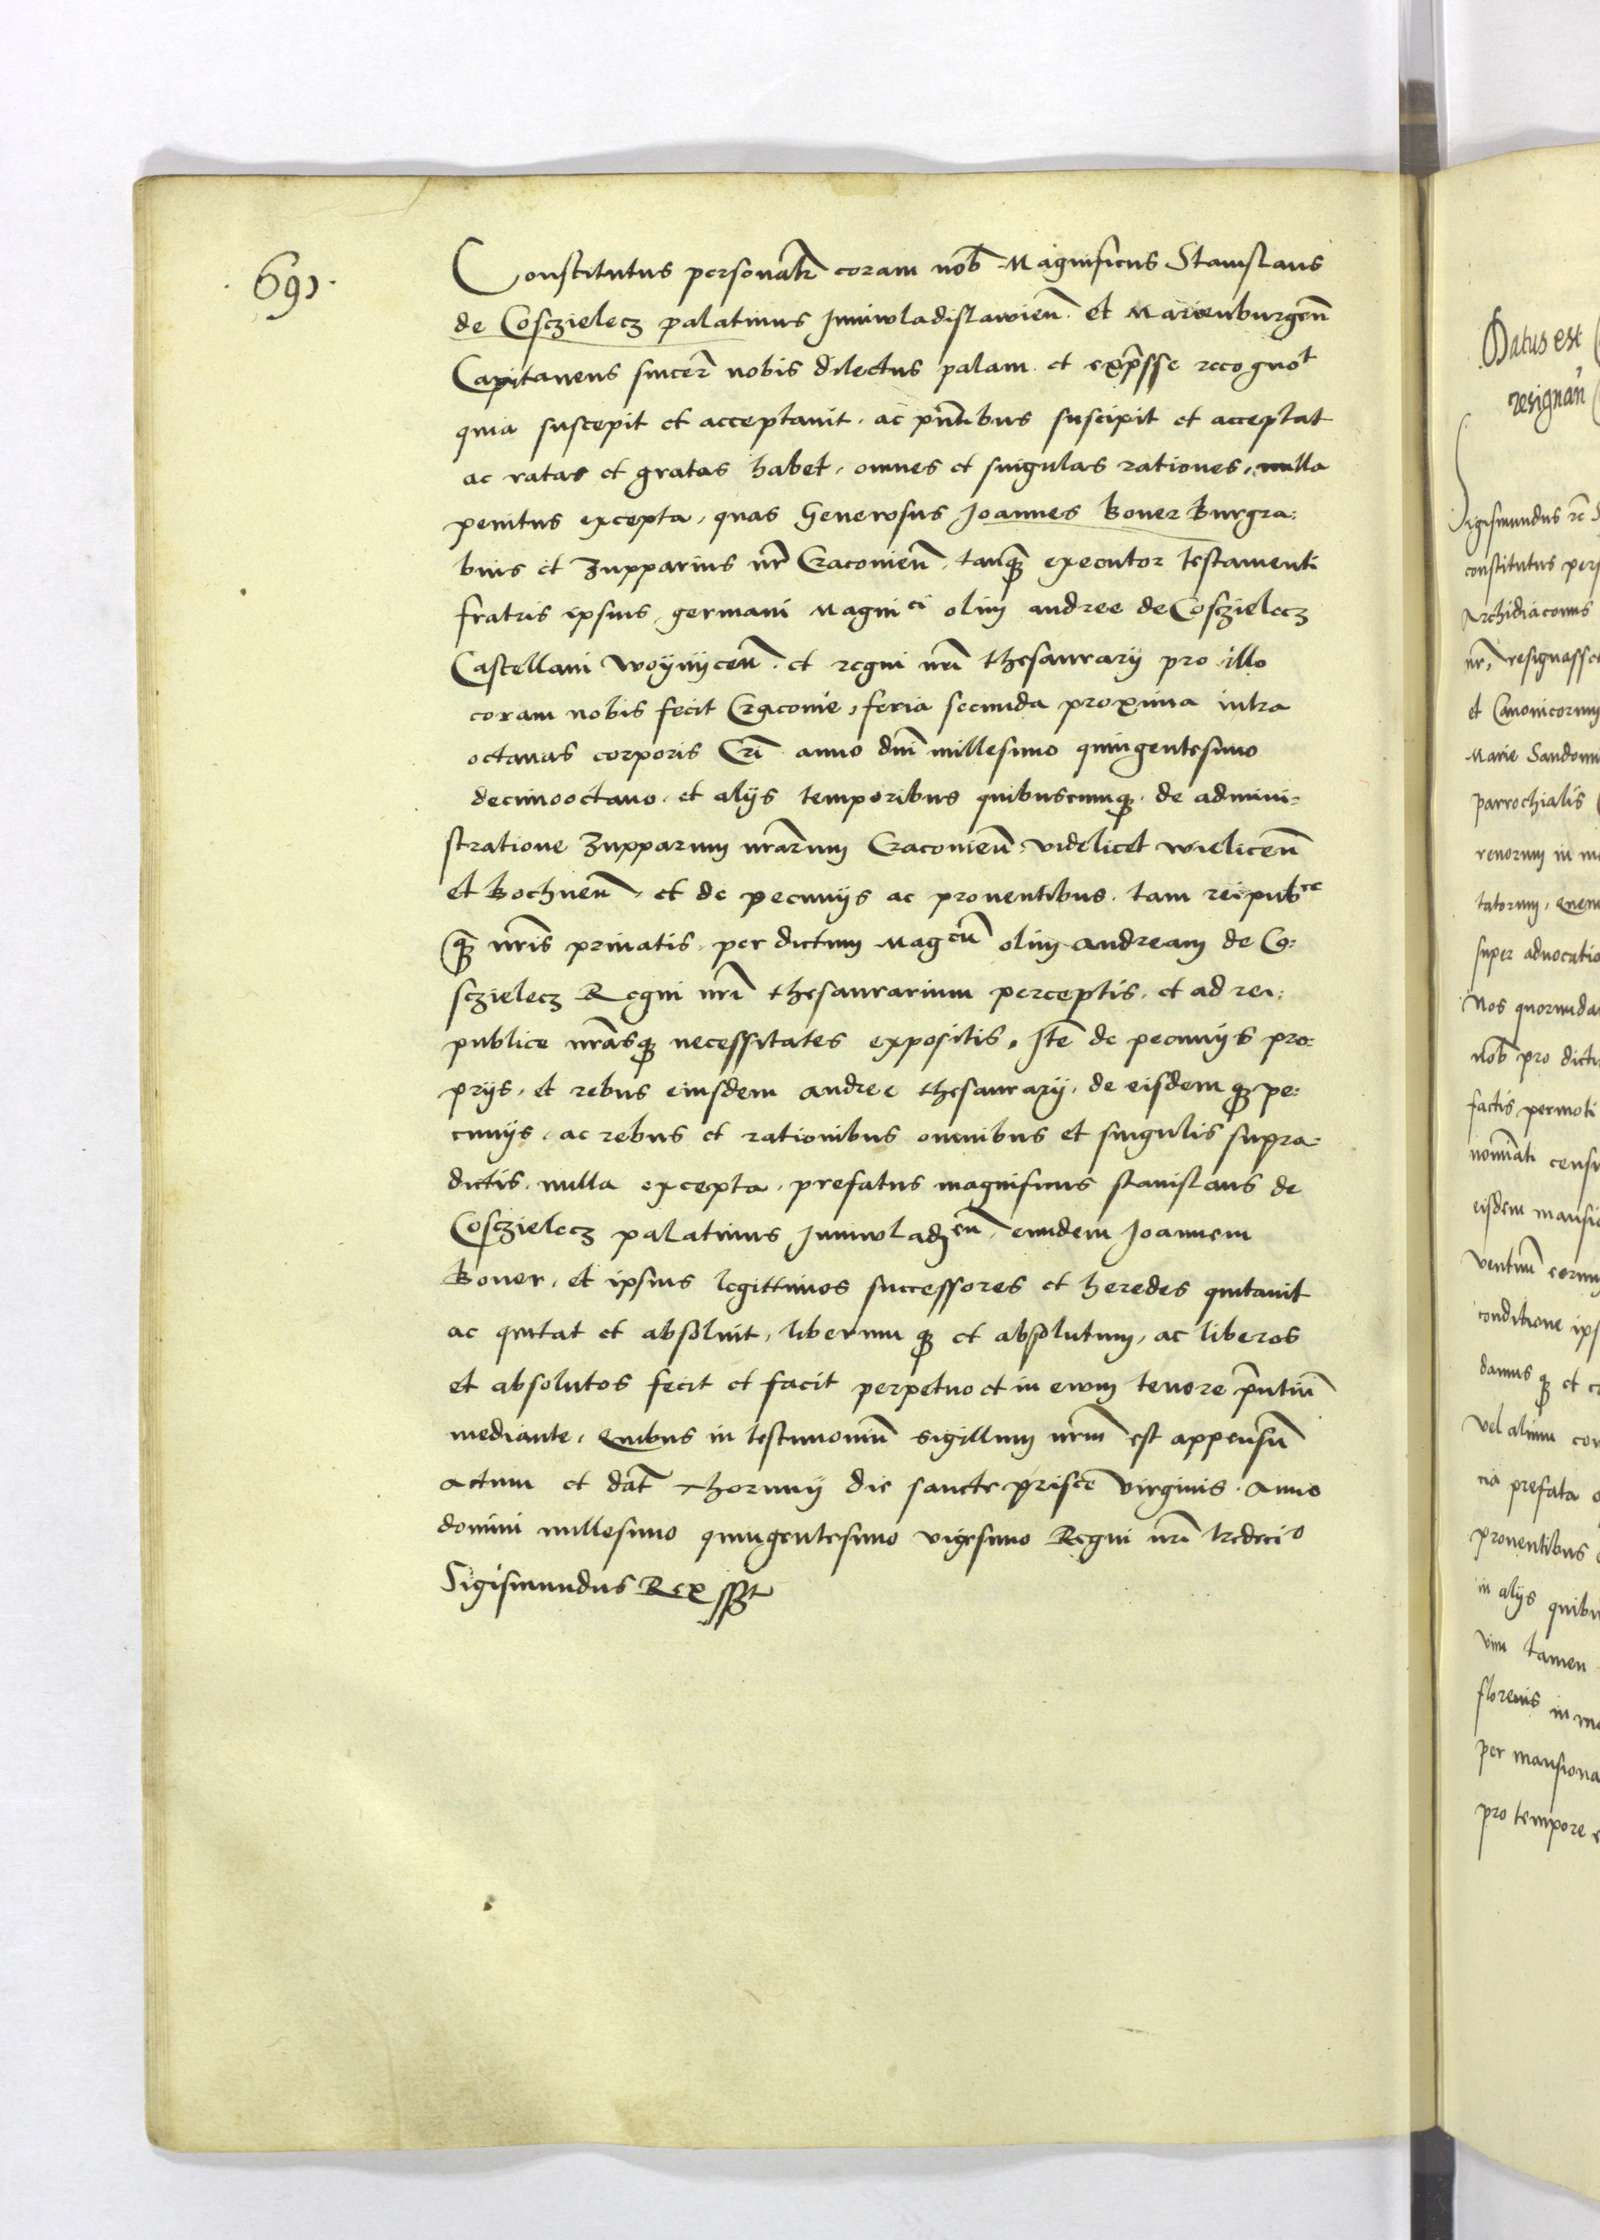 691.
Constitutus personalr coram nob Magnificus Stanislaus
de Cosczielecz palatinus Juniwladislawien. et Marienburgen
Capitaneus sincer nobis dilectus palam et expsse recognot
quia suscepit et acceptauit. ac pntibus suscipit et acceptat
ac ratas et gratas habet, omnes et singulas rationes, nulla
penitus excepta, quas Generosus Joannes Boner Burgra:
bius et Zupparius nr Cracouien, tanq executor testamenti
fratris ipsius germani Magnici olim andree de Cosczielecz
Castellani Woynycen. et regni nri thesaurary pro illo
coram nobis fecit Cracouie, feria secunda proxima intra
octauas corporis Cri anno dni millesimo quingentesimo
decimooctauo. et alys temporibus quibuscumq. de admini=
stratione Zupparum nrarum Cracouien. videlicet wielicen
et Bochnen, et de pecunys ac prouentibus tam reipubce
q nris priuatis, per dictum Magcu olim andream de Co:
sczielecz Regni nri thesaurarium perceptis, et ad rei:
publice nrasq necessitates expositis. Ite de pecunys pro:
prys, et rebus eiusdem andree thesaurary, de eisdem q pe:
cunys, ac rebus et rationibus omnibus et singulis supra=
dictis, nulla excepta, prefatus magnificus stanislaus de
Cosczielecz palatinus Juniwladzen, eundem Joannem
Boner, et ipsius legittimos successores et heredes quitauit
ac quitat et absoluit, liberum q et absolutum, ac liberos
et absolutos fecit et facit perpetuo et in ewm tenore pntiu
mediante, Quibus in testimoniu sigillum nrm est appensu
Actum et dat Thoruny die sancte prisce virginis. Anno
domini millesimo quingentesimo vigesimo Regni nri tredecio
Sigismundus Rex sszt
Datus est
resignan
Sigismundus re
constitutus pers
Archidiaconus
nr, resignasse
et Canonicorum
Marie Sandomi
parrochialis
renorum in ma
tatorum, quem
super aduocatio
Nos quorunda
nob pro dicti
factis permoti
nominati censu
eisdem mansio
ventum eorum
conditione ips
damus q et
vel alium con
cia prefata
prouentibus
in alys quibu
vim tamen
florenis in ma
per mansiona
pro tempore